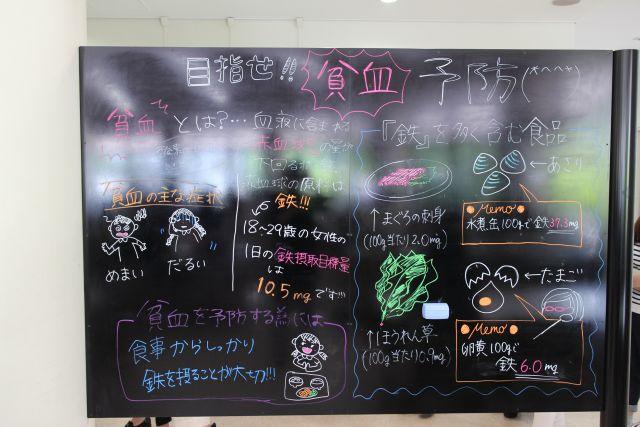 目指せ!! 貧血 予防(*^^*)
貧血とは?…血液に含まれる
赤血球の量が
下回る状
赤血球の原料は
鉄!!!
18~29歳の女性の
1日の鉄摂取目標量
は
10.5mgです…
貧血の主な症状
めまい
だるい
貧血を予防する為には
食事からしっかり
鉄を摂ることが大切!!!
『鉄』を多く含む食品
↑まぐろの刺身
(100g当たり2.0mg)
←あさり
Memo
水煮缶100gで鉄37.3mg
↑ほうれん草
(100g当たり0.9mg)
←たまご
Memo
卵黄100gで
鉄6.0mg